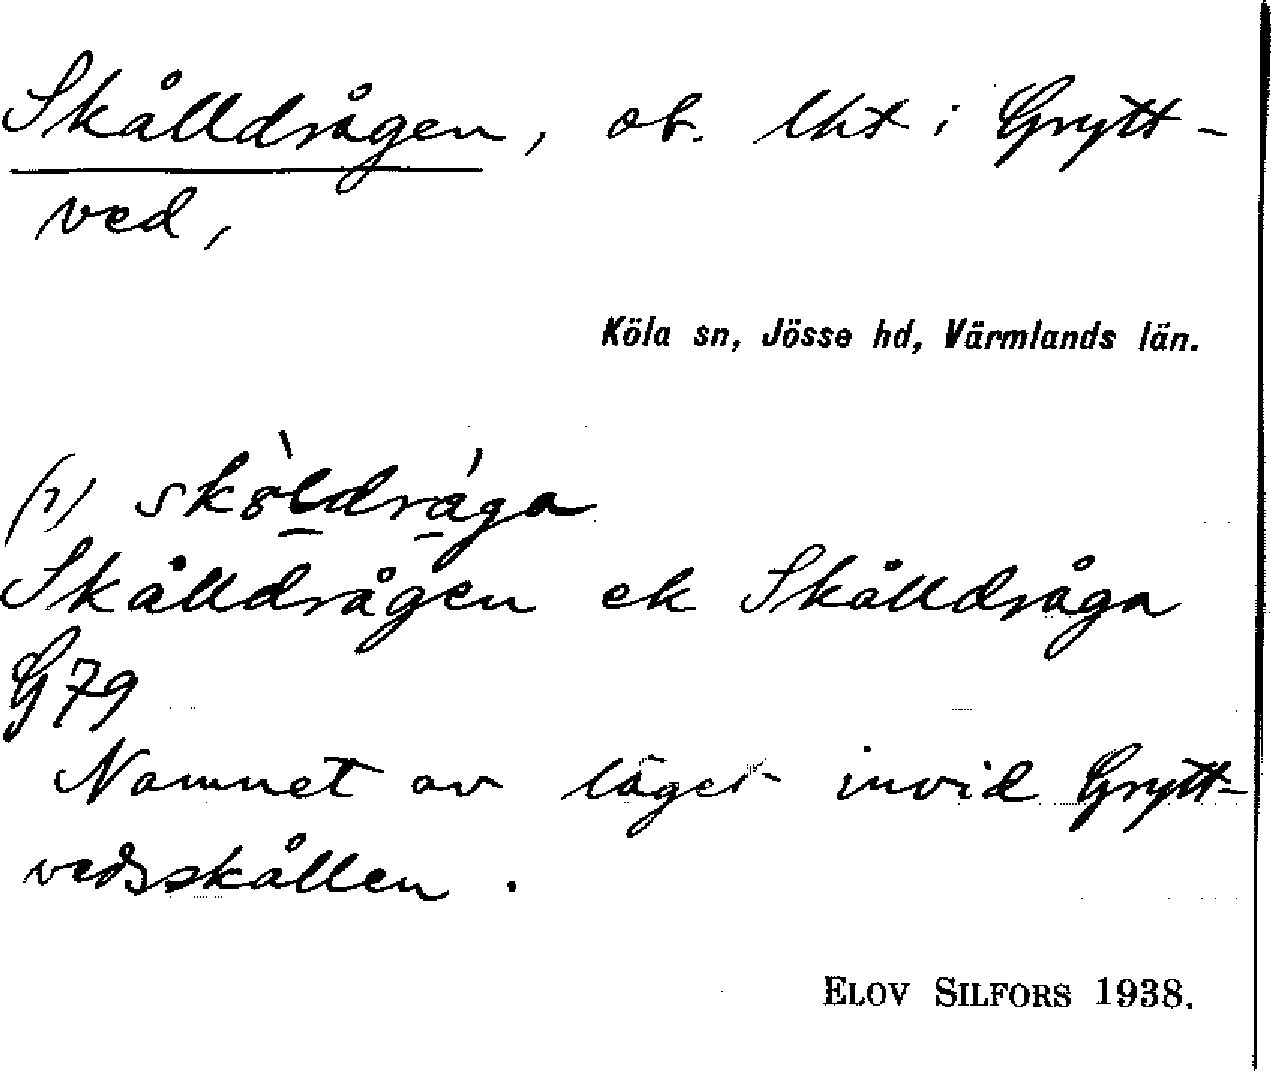 Skålldrågen, ob. lht i Grytt-
ved,
Köla sn, Jösse hd, Värmlands län.
(1) skòldrága
Skålldrågen ek Skålldråga
G 79
Namnet av läget invid Grytt-
vedsskållen.
ELOV SILFORS 1938.